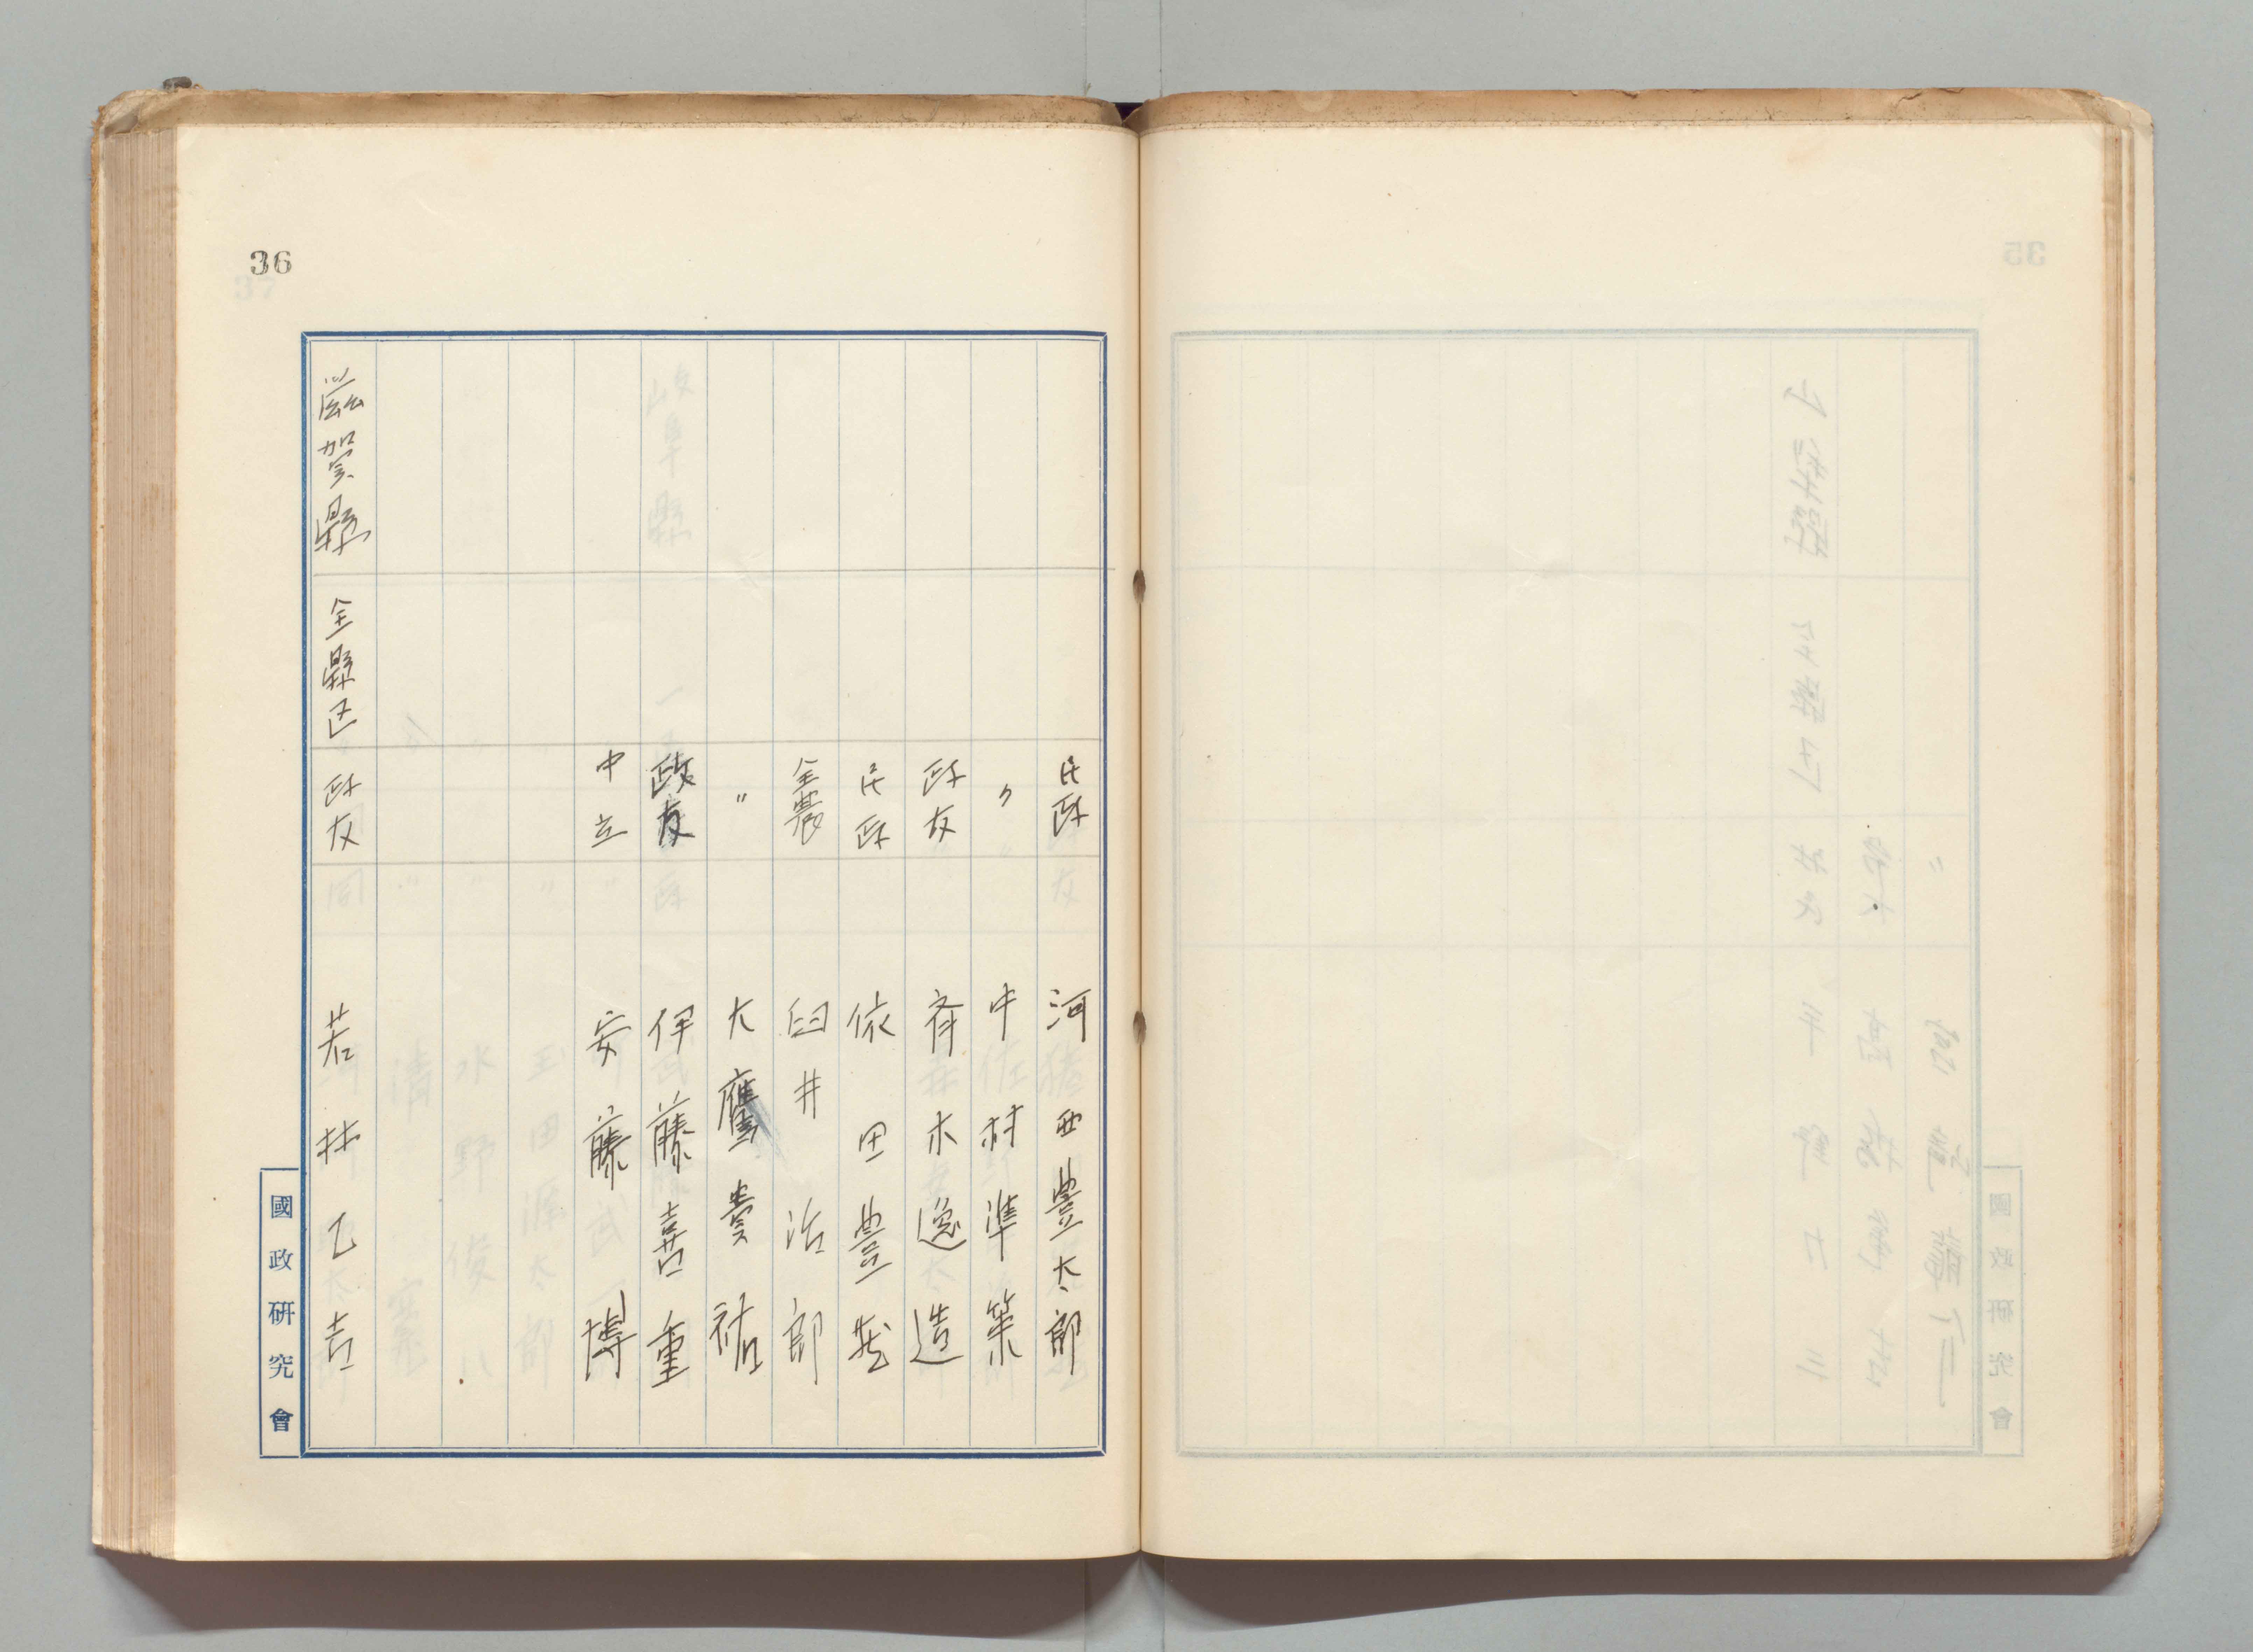 36
民政 河西豊太郎
〃 中村準策
政友 斉木逸造
民政 依田豊蔵
全農 臼井治郎
〃 大鷹貴祐
政友 伊藤喜重
中立 安藤博
滋賀縣 全縣区 政友 若林乙吉
國政研究會